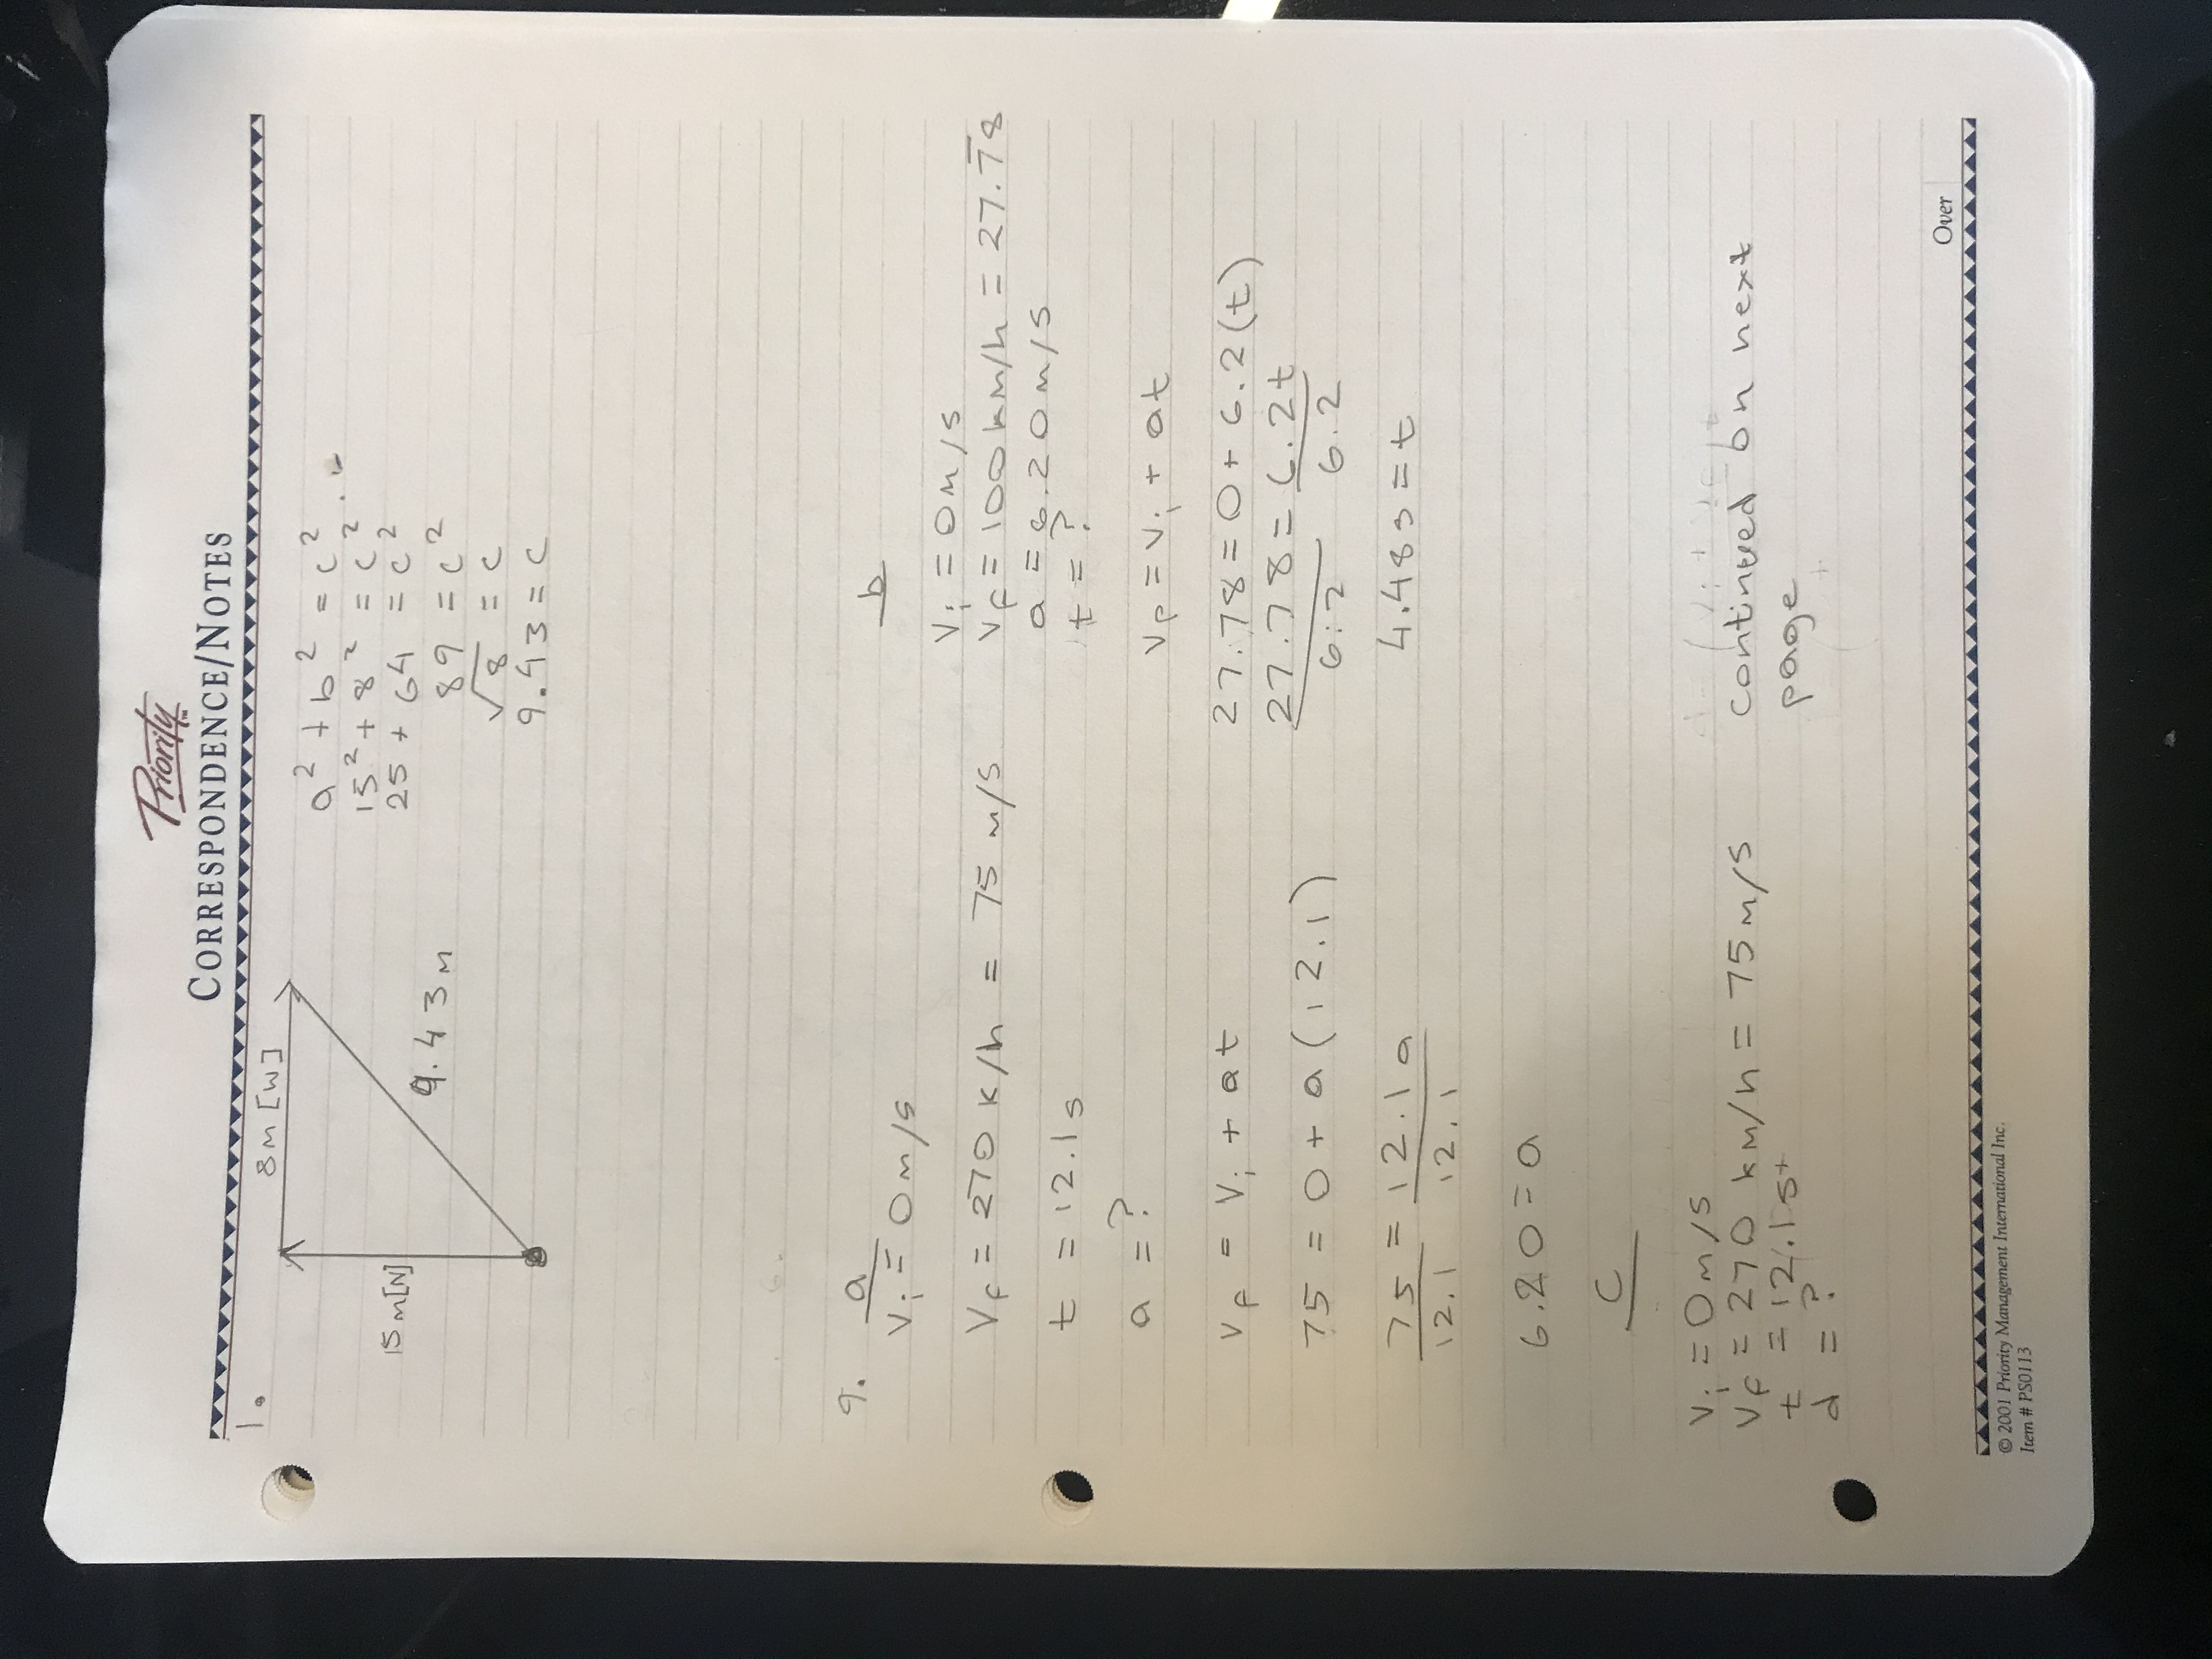 Priority™
CORRESPONDENCE/NOTES
1.
8m [W]
15m[N]
9.43m
a² + b² = c²
15² + 8² = c²
25 + 64 = c²
89 = c²
√8 = c
9.43 = c
9. a
Vi = 0m/s
Vf = 270 k/h = 75 m/s
t = 12.1s
a = ?
Vf = Vi + at
75 = 0 + a(12.1)
75 = 12.1a
12.1 12.1
6.20 = a
b
Vi = 0m/s
Vf = 100km/h = 27.78
a = 6.20m/s
t = ?
Vf = Vi + at
27.78 = 0 + 6.2(t)
27.78 = 6.2t
6.2 6.2
4.48s = t
c
Vi = 0m/s
Vf = 270 km/h = 75m/s
t = 12.1s
d = ?
continued on next
page
Over
© 2001 Priority Management International Inc.
Item # PS0113